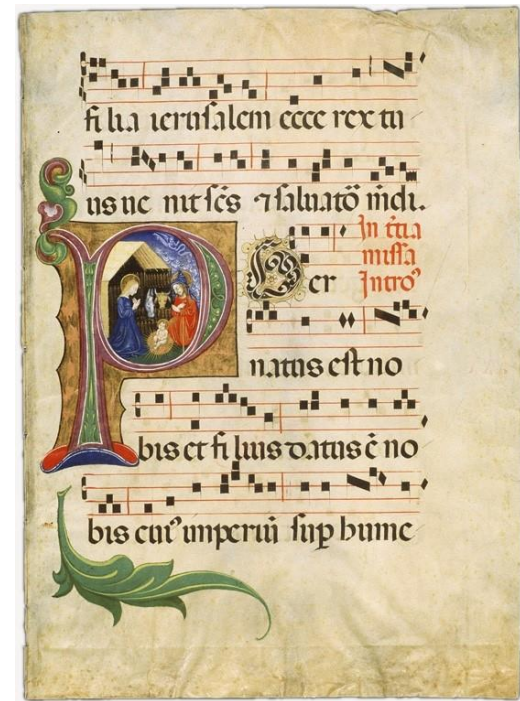 fi lia ierusalem ecce rex tu
us ue nit scs ⁊ saluatō mdi.
In tcia
missa
Intro⁹
P
Uer
natus est no
bis et fi lius datus ē no
bis cui⁹ imperiū sup hume